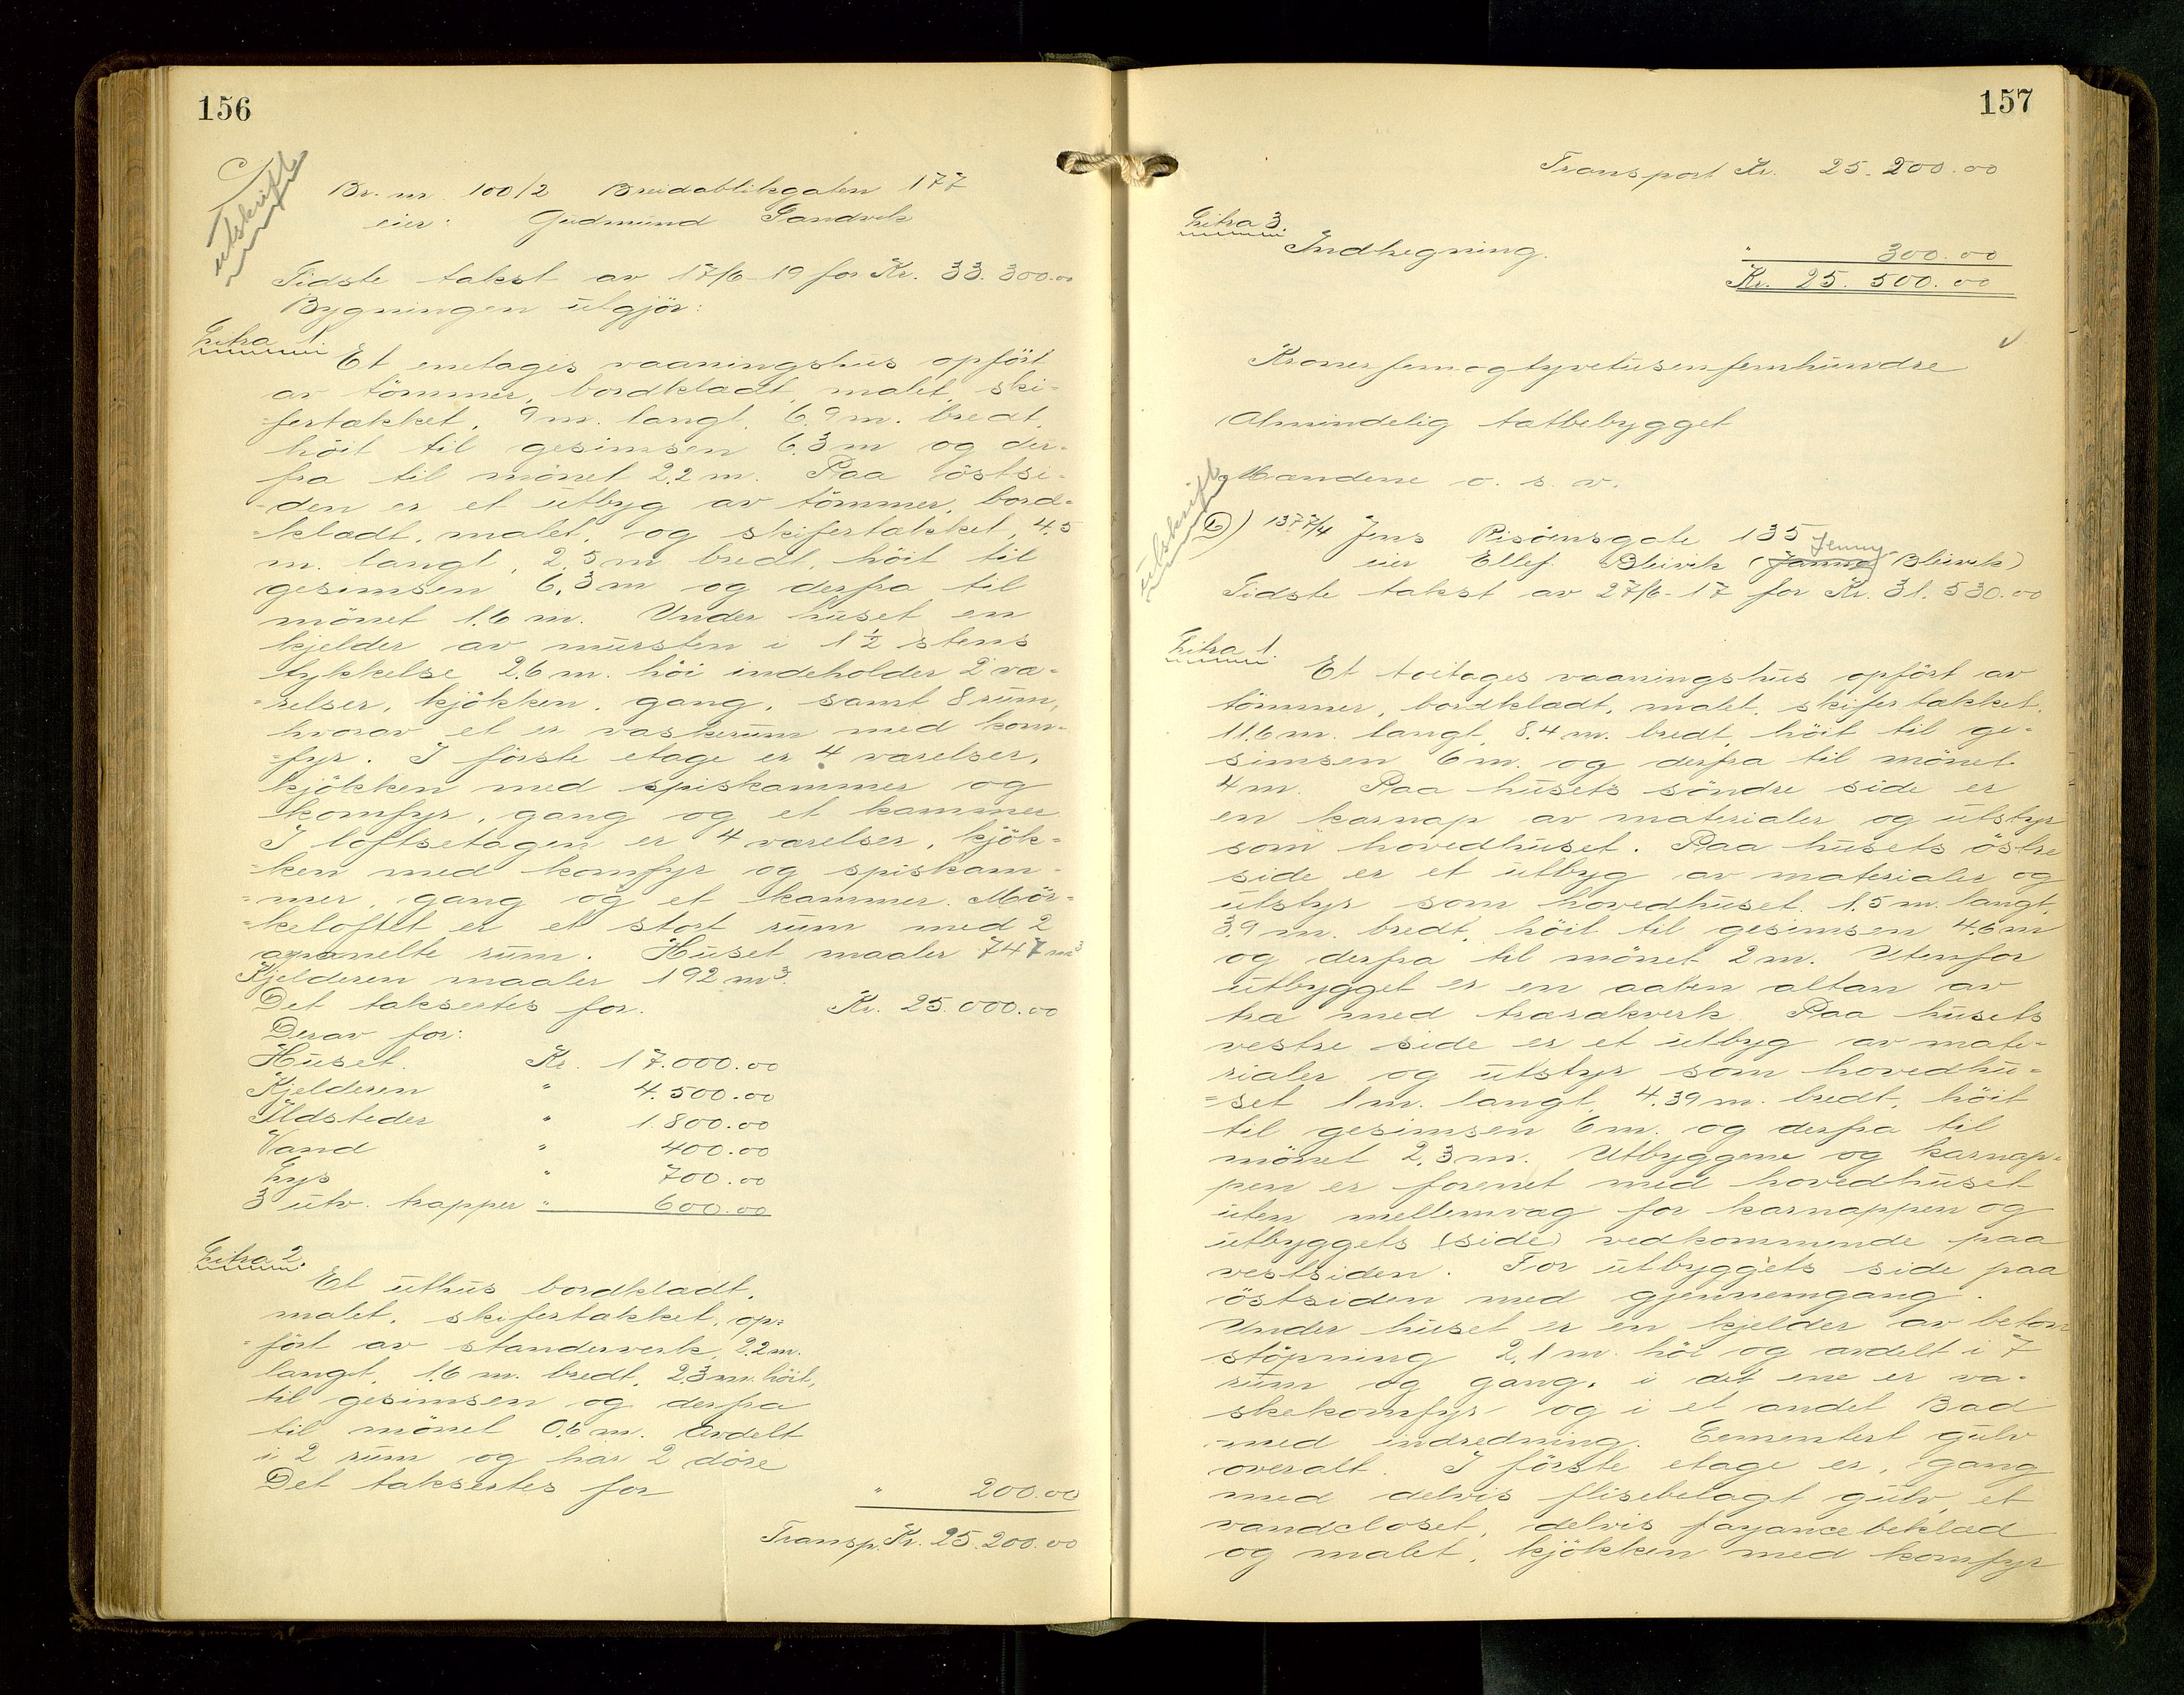 156
C
utskrift
Br. nr. 100/2 Breidabliksgaten 177
eier: Gudmund Sandvik
Sidste takst av 17/6-19 for Kr. 33.300.00
Bygningen utgjör:
Litra 1.
Et enetages vaaningshus opfört
av tömmer, bordklædt, malet, ski-
fertækket, 9 m. langt, 6.9 m. bredt,
höit til gesimsen 6.3 m og der-
fra til mönet 2.2 m. Paa östsi-
den er et utbyg av tömmer, bord-
klædt, malet, og skifertækket, 4.5
m. langt, 2.5 m bredt, höit til
gesimsen 6.3 m og derfra til
mönet 1.6 m. Under huset en
kjelder av mursten i 1 1/2 stens
tykkelse 2.6 m. höi indeholder 2 væ-
relser, kjökken, gang, samt 8 rum,
hvorav et er vaskerum med kom-
fyr. I förste etage er 4 værelser,
kjökken med spiskammer og
komfyr, gang og et kammer
I loftsetagen er 4 værelser, kjök-
ken med komfyr og spiskam-
mer, gang og et kammer. Mör-
keloftet er et stort rum med 2
avpanelte rum. Huset maaler 747 m³
Kjelderen maaler 192 m³.
Det taksertes for. Kr. 25.000.00
Derav for:
Huset. Kr. 17.000.00
Kjelderen " 4.500.00
Ildsteder " 1.800.00
Vand " 400.00
Lys " 700.00
3 utv. trapper " 600.00
Litra 2.
Et uthus bordklædt,
malet, skifertækket, op-
fört av standerverk, 2.2 m.
langt, 1.6 m. bredt, 2.3 m. höit,
til gesimsen og derfra
til mönet 0.6 m. Avdelt
i 2 rum og har 2 döre
Det taksertes for " 200.00
Transp. Kr. 25.200.00
157
Transport Kr. 25.200.00
Litra 3.
Indhegning. " 300.00
Kr. 25.500.00
Kroner femogtyvetusenfemhundre
Almindelig tætbebygget
Mændene o. s. v.
utskrift
D) 1377/4 Jens Risöensgate 135
Jenny
eier Ellef Bleivik (Janna Bleivik)
Sidste takst av 27/6-17 for Kr. 31.530.00
Litra 1.
Et toetages vaaningshus opfört av
tömmer, bordklædt, malet, skifertækket,
11.6 m. langt, 8.4 m. bredt, höit til ge-
simsen 6 m. og derfra til mönet
4 m. Paa husets söndre side er
en karnap av materialer og utstyr
som hovedhuset. Paa husets östre
side er et utbyg av materialer og
utstyr som hovedhuset. 1.5 m. langt,
3.9 m. bredt, höit til gesimsen 4.6 m
og derfra til mönet 2 m. Utenfor
utbygget er en aaben altan av
træ med trærækverk. Paa husets
vestre side er et utbyg av mate-
rialer og utstyr som hovedhu-
set 1 m. langt, 4.39 m. bredt, höit
til gesimsen 6 m. og derfra til
mönet 2.3 m. Utbyggene og karnap-
pen er forenet med hovedhuset
uten mellemvæg for karnappen og
utbyggets (side) vedkommende paa
vestsiden. For utbyggets side paa
östsiden med gjennemgang.
Under huset er en kjelder av beton
stöpning 2.1 m. höi og avdelt i 7
rum og gang, i det ene er va-
skekomfyr og i et andet Bad
med indredning. Cementert gulv
overalt. I förste etage er, gang
med delvis flisebelagt gulv, et
vandcloset, delvis fayancebeklæd
og malet, kjökken med komfyr